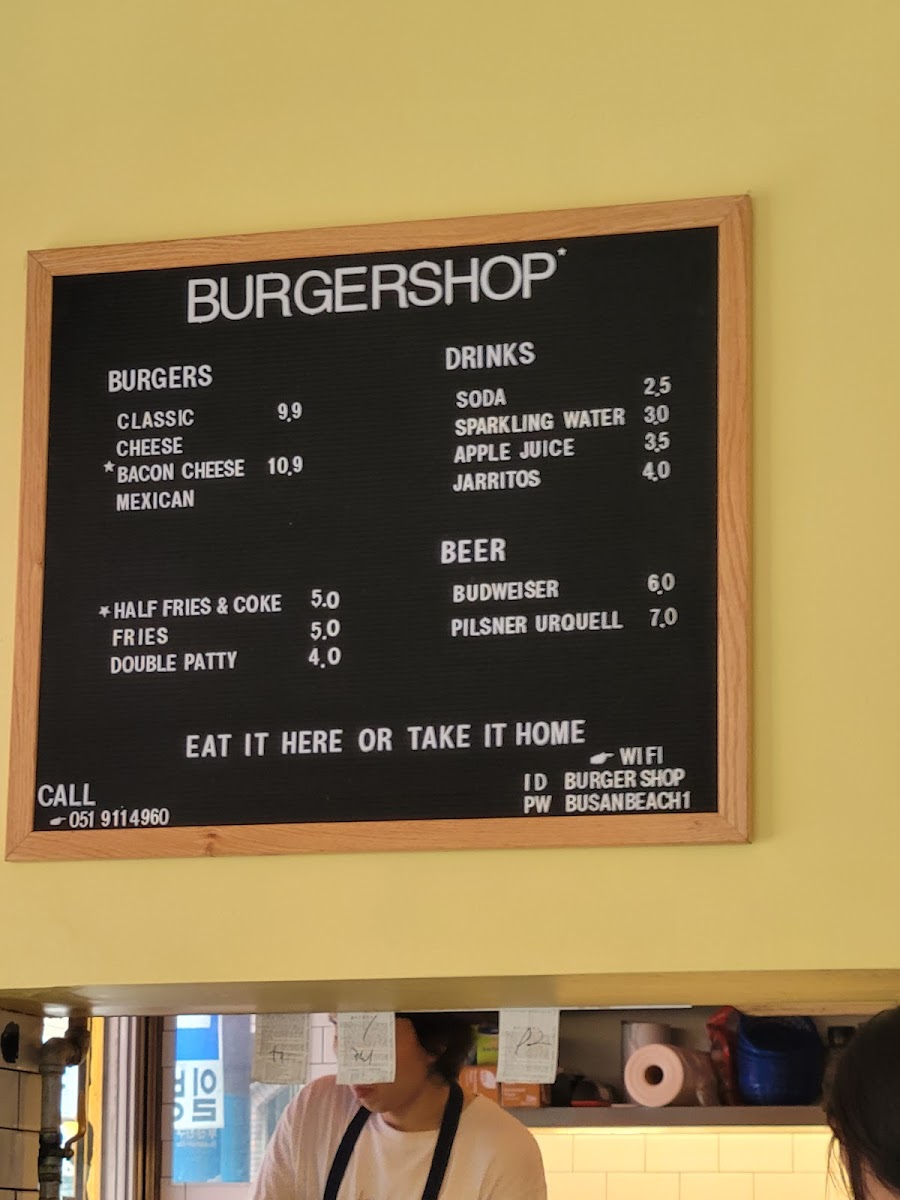 BURGERSHOP*
BURGERS
CLASSIC 9.9
CHEESE
*BACON CHEESE 10.9
MEXICAN
*HALF FRIES & COKE 5.0
FRIES 5.0
DOUBLE PATTY 4.0
DRINKS
SODA 2.5
SPARKLING WATER 3.0
APPLE JUICE 3.5
JARRITOS 4.0
BEER
BUDWEISER 6.0
PILSNER URQUELL 7.0
EAT IT HERE OR TAKE IT HOME
CALL
☛ 051 9114960
☛ WIFI
ID BURGER SHOP
PW BUSANBEACH1